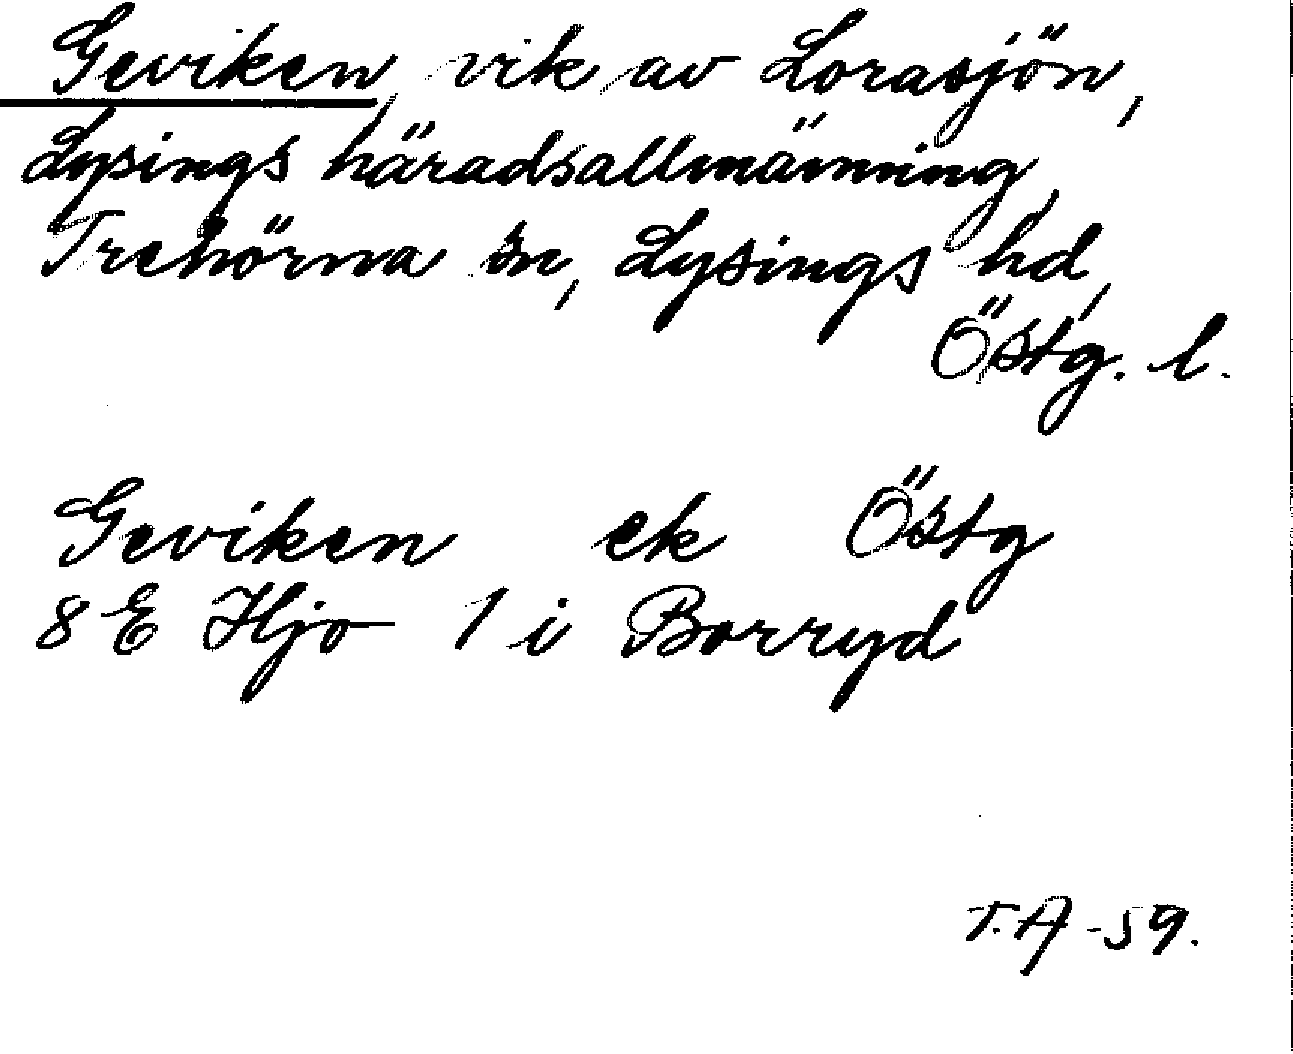 Geviken, vik av Lorasjön,
Lysings häradsallmänning,
Trehörna sn, Lysings hd,
Östg. l.
Geviken ek Östg
8 E Hjo 1 i Borryd
T.A -59.